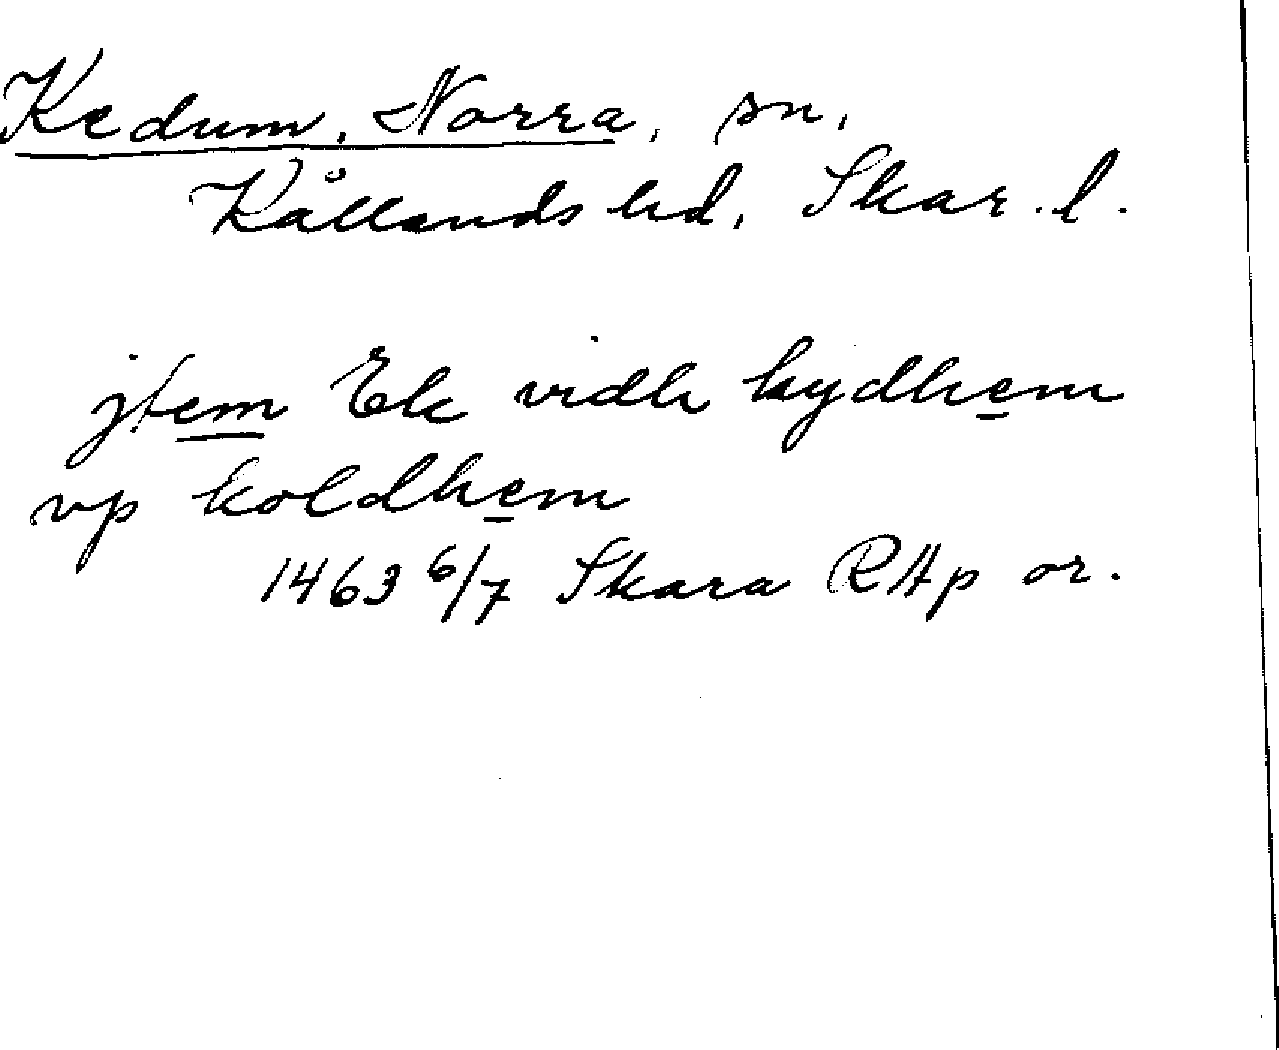 Kedum, Norra, sn,
Kållands hd, Skar. l.
jtem Ek vidh kydhem
vp koldhem
1463 6/7 Skara RAp or.